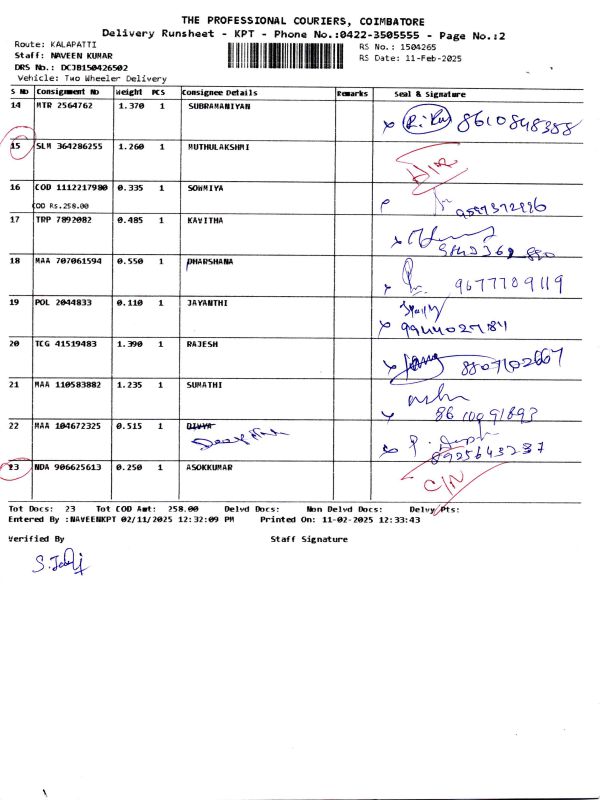 THE PROFESSIONAL COURIERS, COIMBATORE
Delivery Runsheet - KPT - Phone No.:0422-3505555 - Page No.:2
Route: KALAPATTI
RS No.: 1504265
Staff: NAVEEN KUMAR
RS Date: 11-Feb-2025
DRS No.: DCJB150426502
Vehicle: Two Wheeler Delivery
S No Consignment No Weight PCS Consignee Details Remarks Seal & Signature
14 MTR 2564762 1.370 1 SUBRAMANIYAN
8610848358
15 SLM 364286255 1.260 1 MUTHULAKSHMI
16 COD 1112217980 0.335 1 SOWMIYA
COD Rs.258.00
17 TRP 7892082 0.485 1 KAVITHA
18 MAA 707061594 0.550 1 DHARSHANA
9677709119
19 POL 2044833 0.110 1 JAYANTHI
9944027184
20 TCG 41519483 1.390 1 RAJESH
8807102667
21 MAA 110583882 1.235 1 SUMATHI
8610091893
22 MAA 104672325 0.515 1 DIVYA
8925643237
23 NDA 906625613 0.250 1 ASOKKUMAR
C/N
Tot Docs: 23 Tot COD Amt: 258.00 Delvd Docs: Non Delvd Docs: Delvy Pts:
Entered By :NAVEENKPT 02/11/2025 12:32:09 PM Printed On: 11-02-2025 12:33:43
Verified By Staff Signature